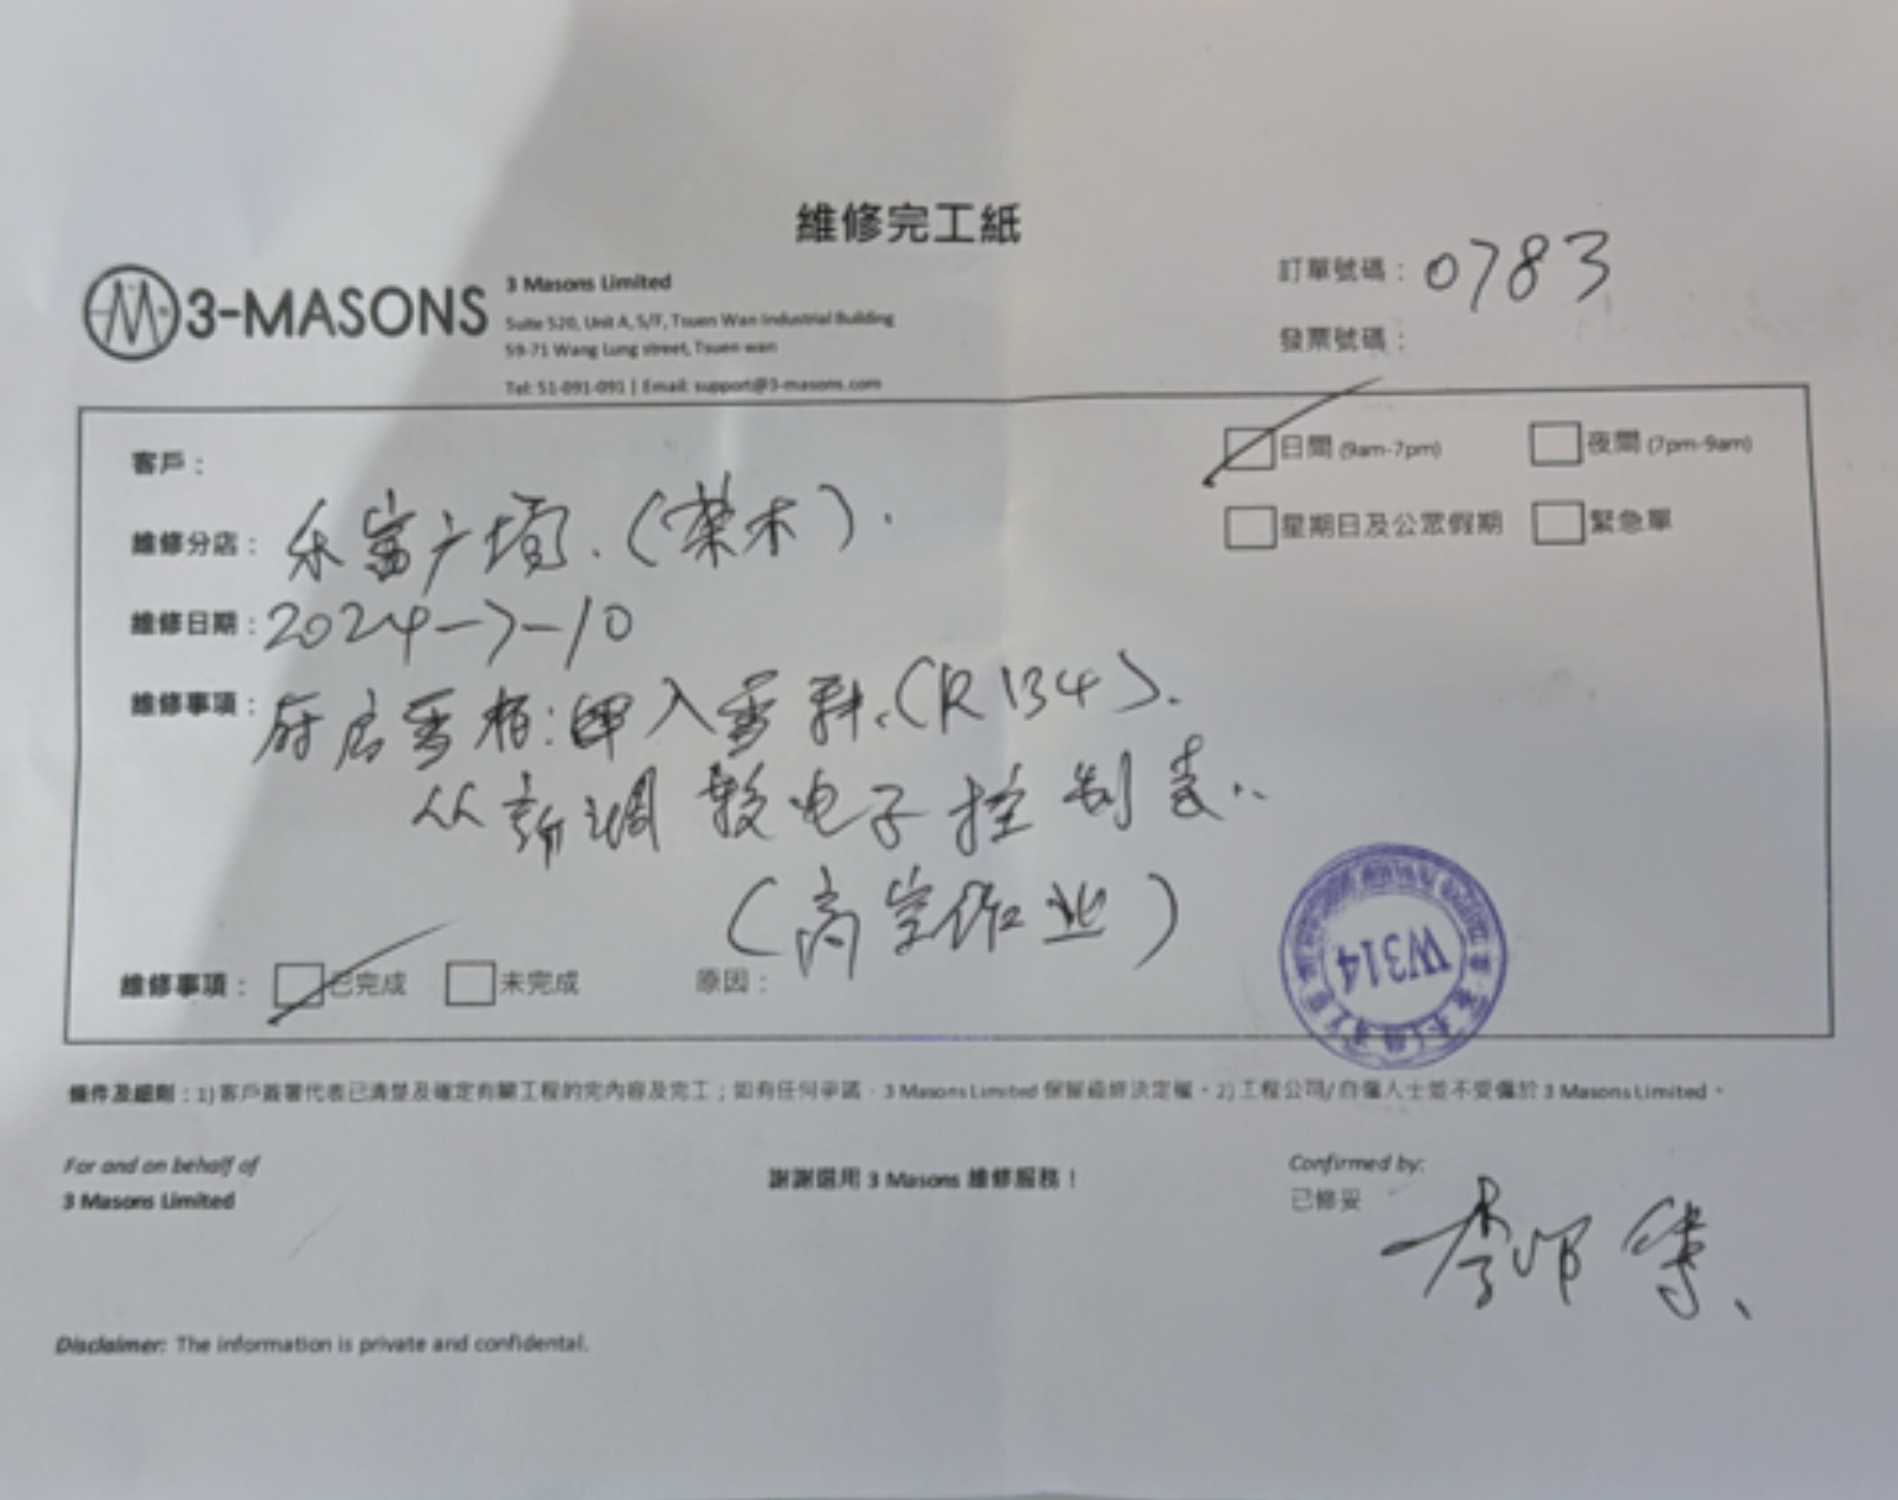 維修完工紙
3-MASONS
3 Masons Limited
Suite 520, Unit A, 5/F, Tsuen Wan Industrial Building
59-71 Wang Lung street, Tsuen wan
Tel: 51-091-091 | Email: support@3-masons.com
訂單號碼：0783
發票號碼：
客戶：
日間 (9am-7pm)
夜間 (7pm-9am)
維修分店：乐富广場.(茶木).
星期日及公眾假期
緊急單
維修日期：2024-7-10
維修事項：厨房雪柜:再入雪种.(R134).
从新调较电子控制表..
(高空作业)
維修事項：
已完成
未完成
原因：
W314
條件及細則：1) 客戶簽署代表已清楚及確定有關工程的完內容及完工；如有任何爭議，3 Masons Limited 保留最終決定權。2) 工程公司/自僱人士並不受僱於 3 Masons Limited。
For and on behalf of
3 Masons Limited
謝謝選用 3 Masons 維修服務！
Confirmed by:
已修妥
Disclaimer: The information is private and confidental.